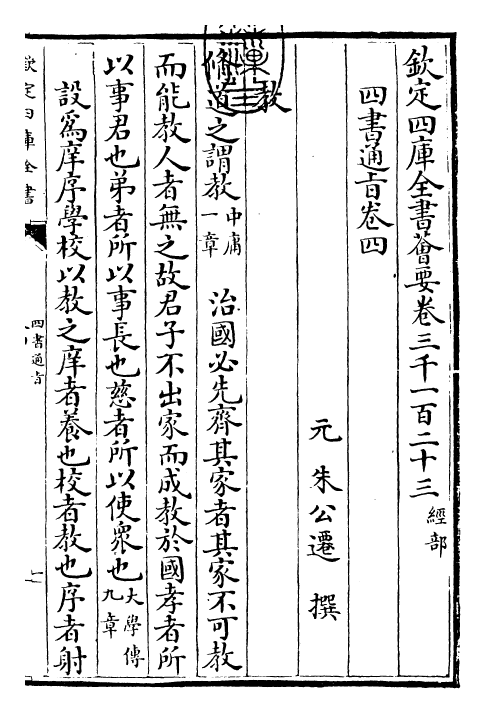 欽定四庫全書薈要卷三千一百二十三 經部
四書通旨卷四
元 朱公遷 撰
教
脩道之謂教 中庸一章 治國必先齊其家者其家不可教
而能教人者無之故君子不出家而成教於國孝者所
以事君也弟者所以事長也慈者所以使衆也 大學傳九章
設爲庠序學校以教之庠者養也校者教也序者射
欽定四庫全書
四書通旨